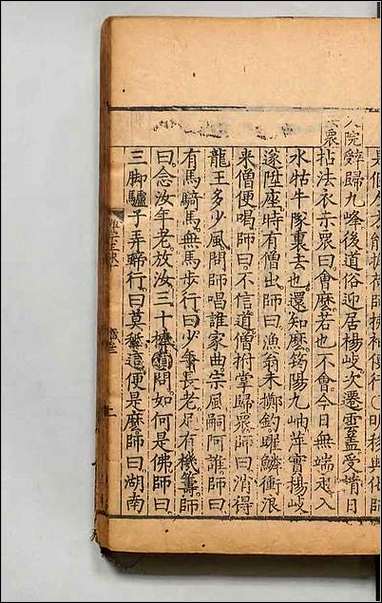 院辤歸九峰後道俗迎居楊岐次遷雲蓋受請日
拈法衣示眾曰會麼若也不會今日無端走入
水牯牛隊裏去也還知麼筠陽九岫萍實楊岐
遂陞座時有僧出師曰漁翁未擲釣躍鱗衝浪
來僧便喝師曰不信道僧拊掌歸眾師曰消得
龍王多少風問師唱誰家曲宗風嗣阿誰師曰
有馬騎馬無馬步行曰少年長老足有機籌師
曰念汝年老放汝三十棒問如何是佛師曰
三脚驢子弄蹄行曰莫秖這便是麼師曰湖南